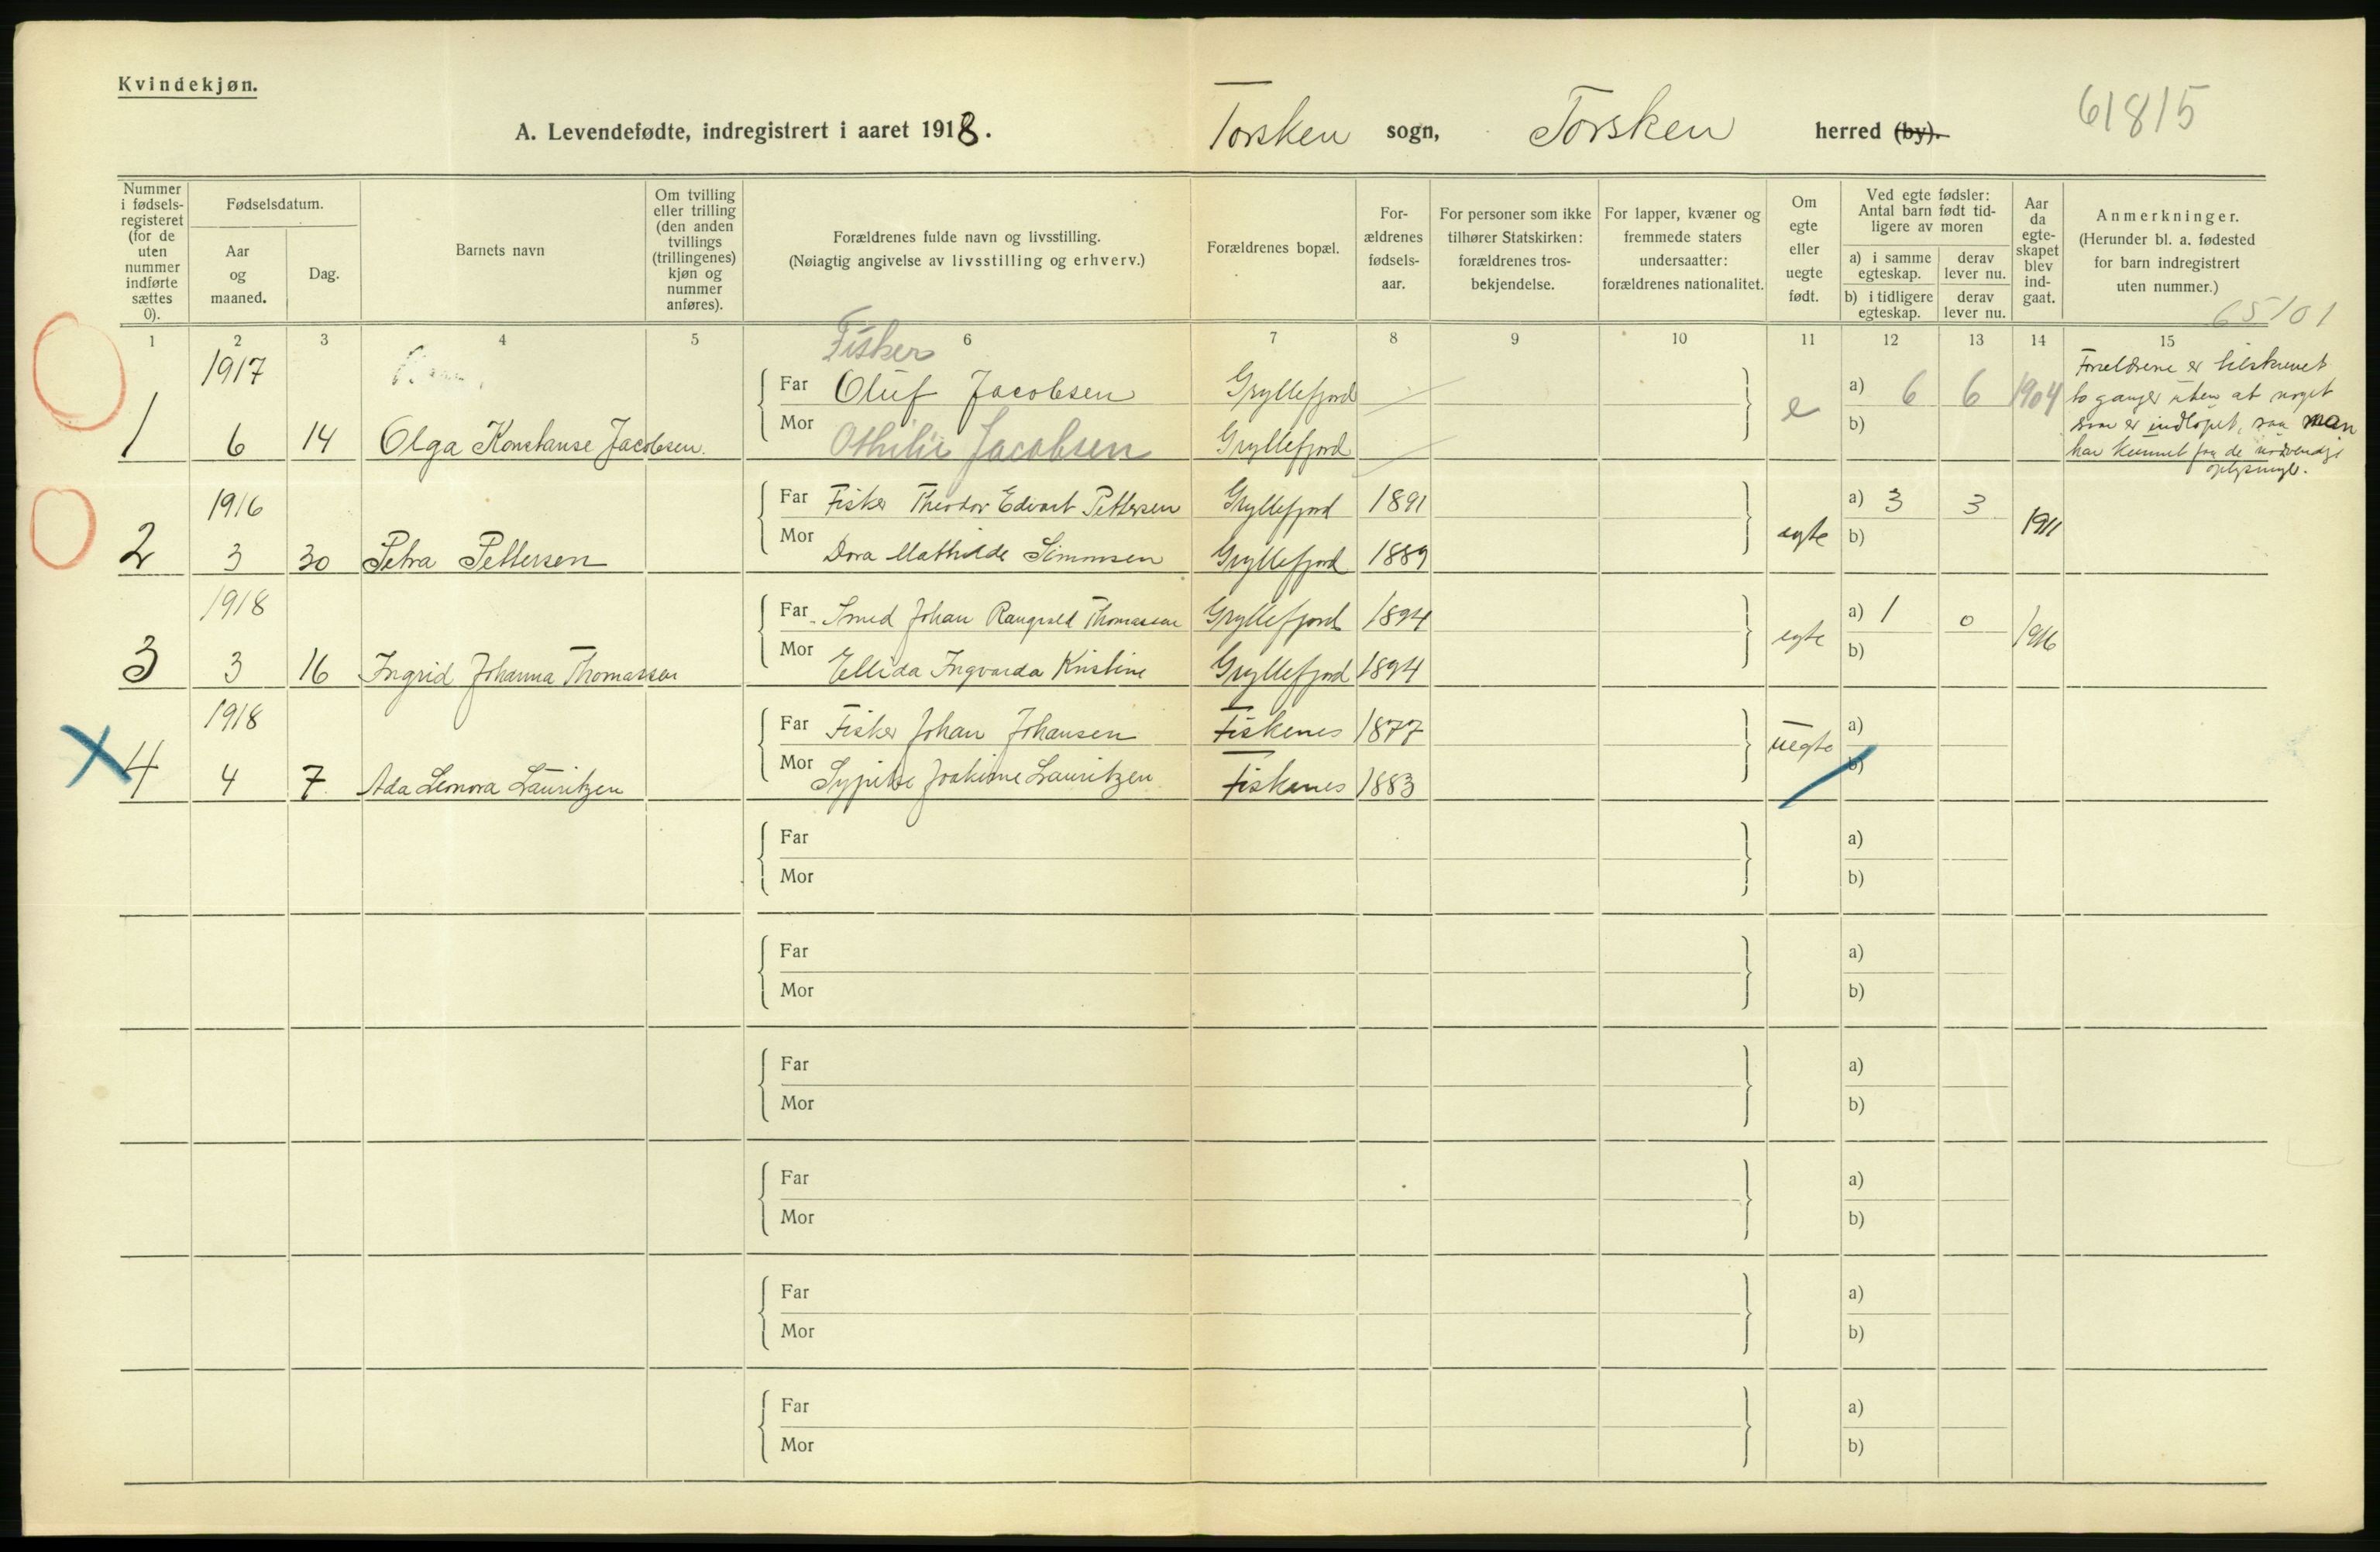 Kvindekjøn.
A. Levendefødte, indregistrert i aaret 1918.
Torsken sogn, Torsken herred (by).
61815
Nummer i fødsels-registeret (for de uten nummer indførte sættes 0).
Fødselsdatum.
Aar og maaned.
Dag.
Barnets navn
Om tvilling eller trilling (den anden tvillings (trillingenes) kjøn og nummer anføres).
Forældrenes fulde navn og livsstilling.
(Nøiagtig angivelse av livsstilling og erhverv.)
Forældrenes bopæl.
For-ældrenes fødsels-aar.
For personer som ikke tilhører Statskirken: forældrenes tros-bekjendelse.
For lapper, kvæner og fremmede staters undersaatter: forældrenes nationalitet.
Om egte eller uegte født.
Ved egte fødsler: Antal barn født tid-ligere av moren
a) i samme egteskap.
derav lever nu.
b) i tidligere egteskap.
derav lever nu.
Aar da egte-skapet blev ind-gaat.
Anmerkninger.
(Herunder bl. a. fødested for barn indregistrert uten nummer.)
65101
1 2 3 4 5 6 7 8 9 10 11 12 13 14 15
1917
Fisker
Far Oluf Jacobsen Gryllefjord
e a) 6 6 1904
1 6 14 Olga Konstanse Jacobsen.
Mor Othilie Jacobsen Gryllefjord
b)
Forældrene er tilskrevet
to ganger uten at noget
svar er indløpet, saa man
har kunnet faa de nødvendige
oplysninger.
1916
Far Fisker Theodor Edvart Pettersen Gryllefjord 1891
egte a) 3 3 1911
2 3 30 Petra Pettersen
Mor Dora Mathilde Simonsen Gryllefjord 1889
b)
1918
Far Smed Johan Rangvald Thomassen Gryllefjord 1894
egte a) 1 0 1916
3 3 16 Ingrid Johanna Thomassen
Mor Ellida Ingvarda Kristine Gryllefjord 1894
b)
1918
Far Fisker Johan Johansen Fiskenes 1877
uegte a)
4 4 7. Ada Leonora Lauritzen
Mor Joakime Lauritzen Fiskenes 1883
b)
Far a)
Mor b)
Far a)
Mor b)
Far a)
Mor b)
Far a)
Mor b)
Far a)
Mor b)
Far a)
Mor b)